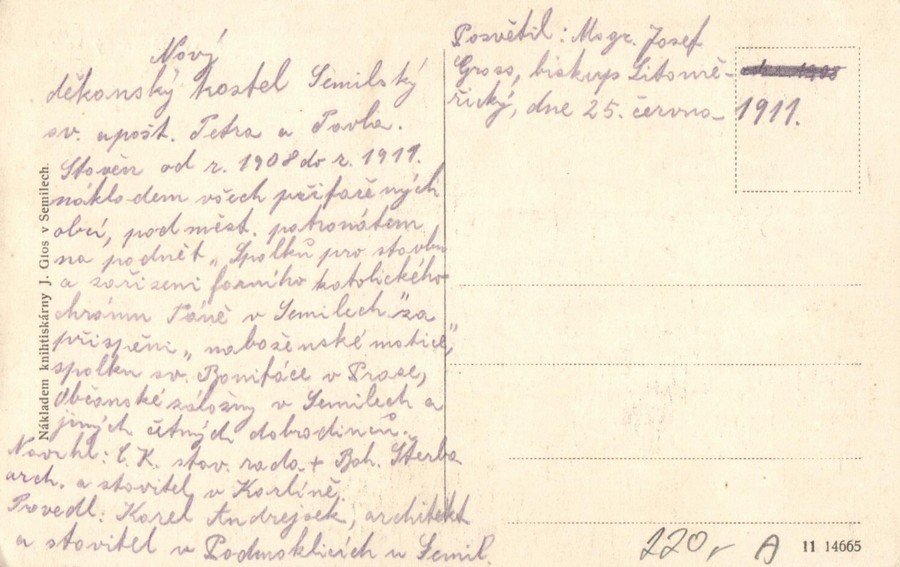 Nový
děkanský kostel Semilský
sv. apošt. Petra a Pavla.
Stavěn od r. 1908 do r. 1911.
nákladem všech přifařených
obcí, pod měst. patronátem
na podnět „Spolku pro stavbu
a zařízení farního katolického
chrámu Páně v Semilech" za
přispění „náboženské matice",
spolku sv. Bonifáce v Praze,
Občanské záložny v Semilech a
jiných četných dobrodinců.
Navrhl: C. K. stav. rada + Boh. Štěrba
arch. a stavitel v Karlíně.
Provedl: Karel Andrejsek, architekt
a stavitel v Podmoklicích u Semil.
Posvětil: Msgr. Josef
Gross, biskup Litomě-
řický, dne 25. června 1911.
Nákladem knihtiskárny J. Glos v Semilech.
220,- A
11 14665